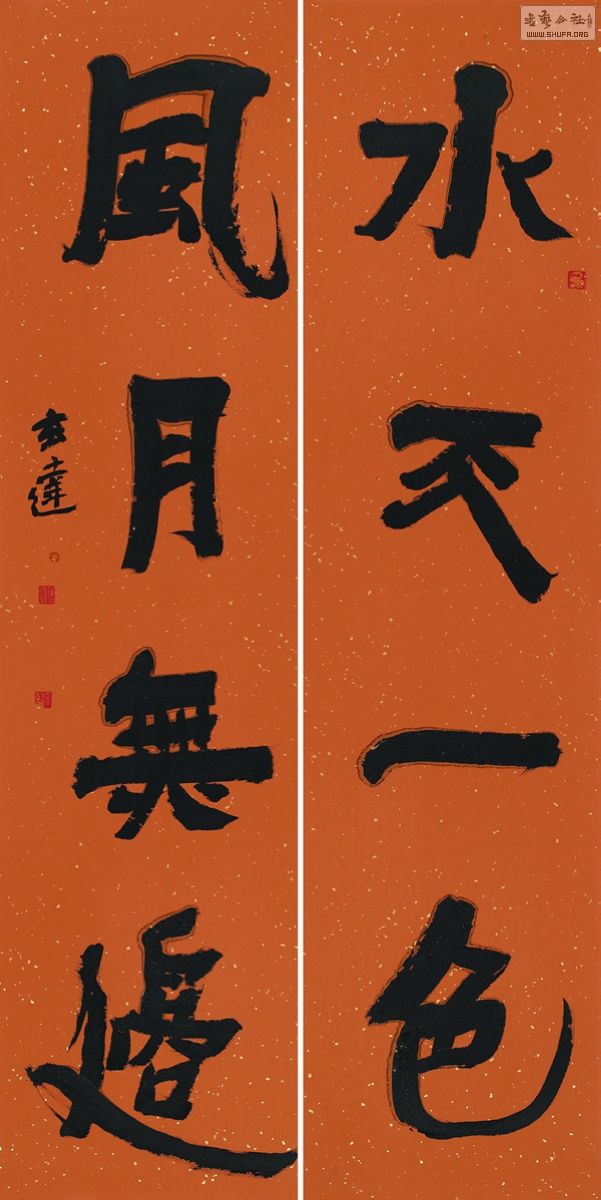 水天一色
風月無邊
玄達
書藝公社
WWW.SHUFA.ORG